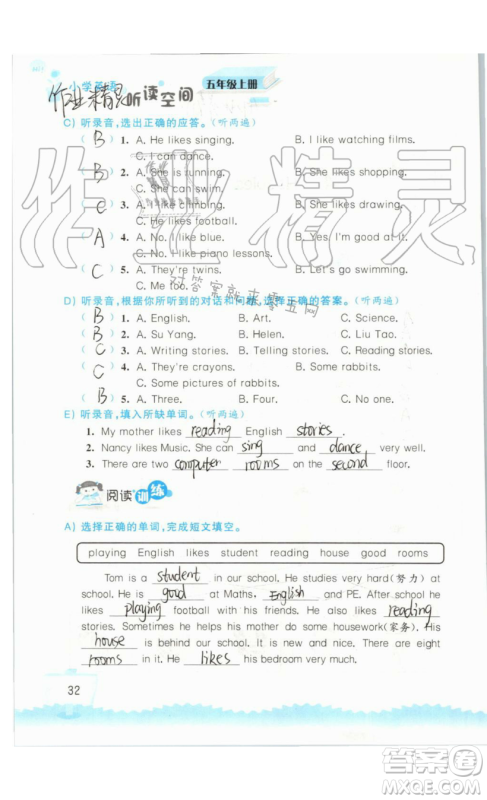 小学英语
听读空间
五年级上册
作业精灵
C) 听录音,选出正确的应答。(听两遍)
( B ) 1. A. He likes singing. B. I like watching films.
C. I can dance.
( B ) 2. A. She is running. B. She likes shopping.
C. She can swim.
( C ) 3. A. She likes dancing. B. She likes drawing.
C. He likes football.
( A ) 4. A. No. I like blue. B. Yes. I'm good at it.
C. No. I like piano lessons.
( C ) 5. A. They're twins. B. Let's go swimming.
C. Yes, they do.
对答案就来零五网
D) 听录音,根据你所听到的对话和问题,选择正确的答案。(听两遍)
( B ) 1. A. English. B. Art. C. Science.
( B ) 2. A. Su Yang. B. Helen. C. Liu Tao.
( C ) 3. A. Writing stories. B. Telling stories. C. Reading stories.
( C ) 4. A. They're crayons. B. Some rabbits.
C. Some pictures of rabbits.
( B ) 5. A. Three. B. Four. C. No one.
E) 听录音,填入所缺单词。(听两遍)
1. My mother likes reading English stories.
2. Nancy likes Music. She can sing and dance very well.
3. There are two computer rooms on the second floor.
阅读训练
A) 选择正确的单词,完成短文填空。
playing English likes student reading house good rooms
Tom is a student in our school. He studies very hard(努力) at
school. He is good at Maths, English and PE. After school he
likes playing football with his friends. He also likes reading
stories. Sometimes he helps his mother do some housework(家务). His
house is behind our school. It is big and nice. There are eight
rooms in it. He likes his bedroom very much.
32
作业精灵